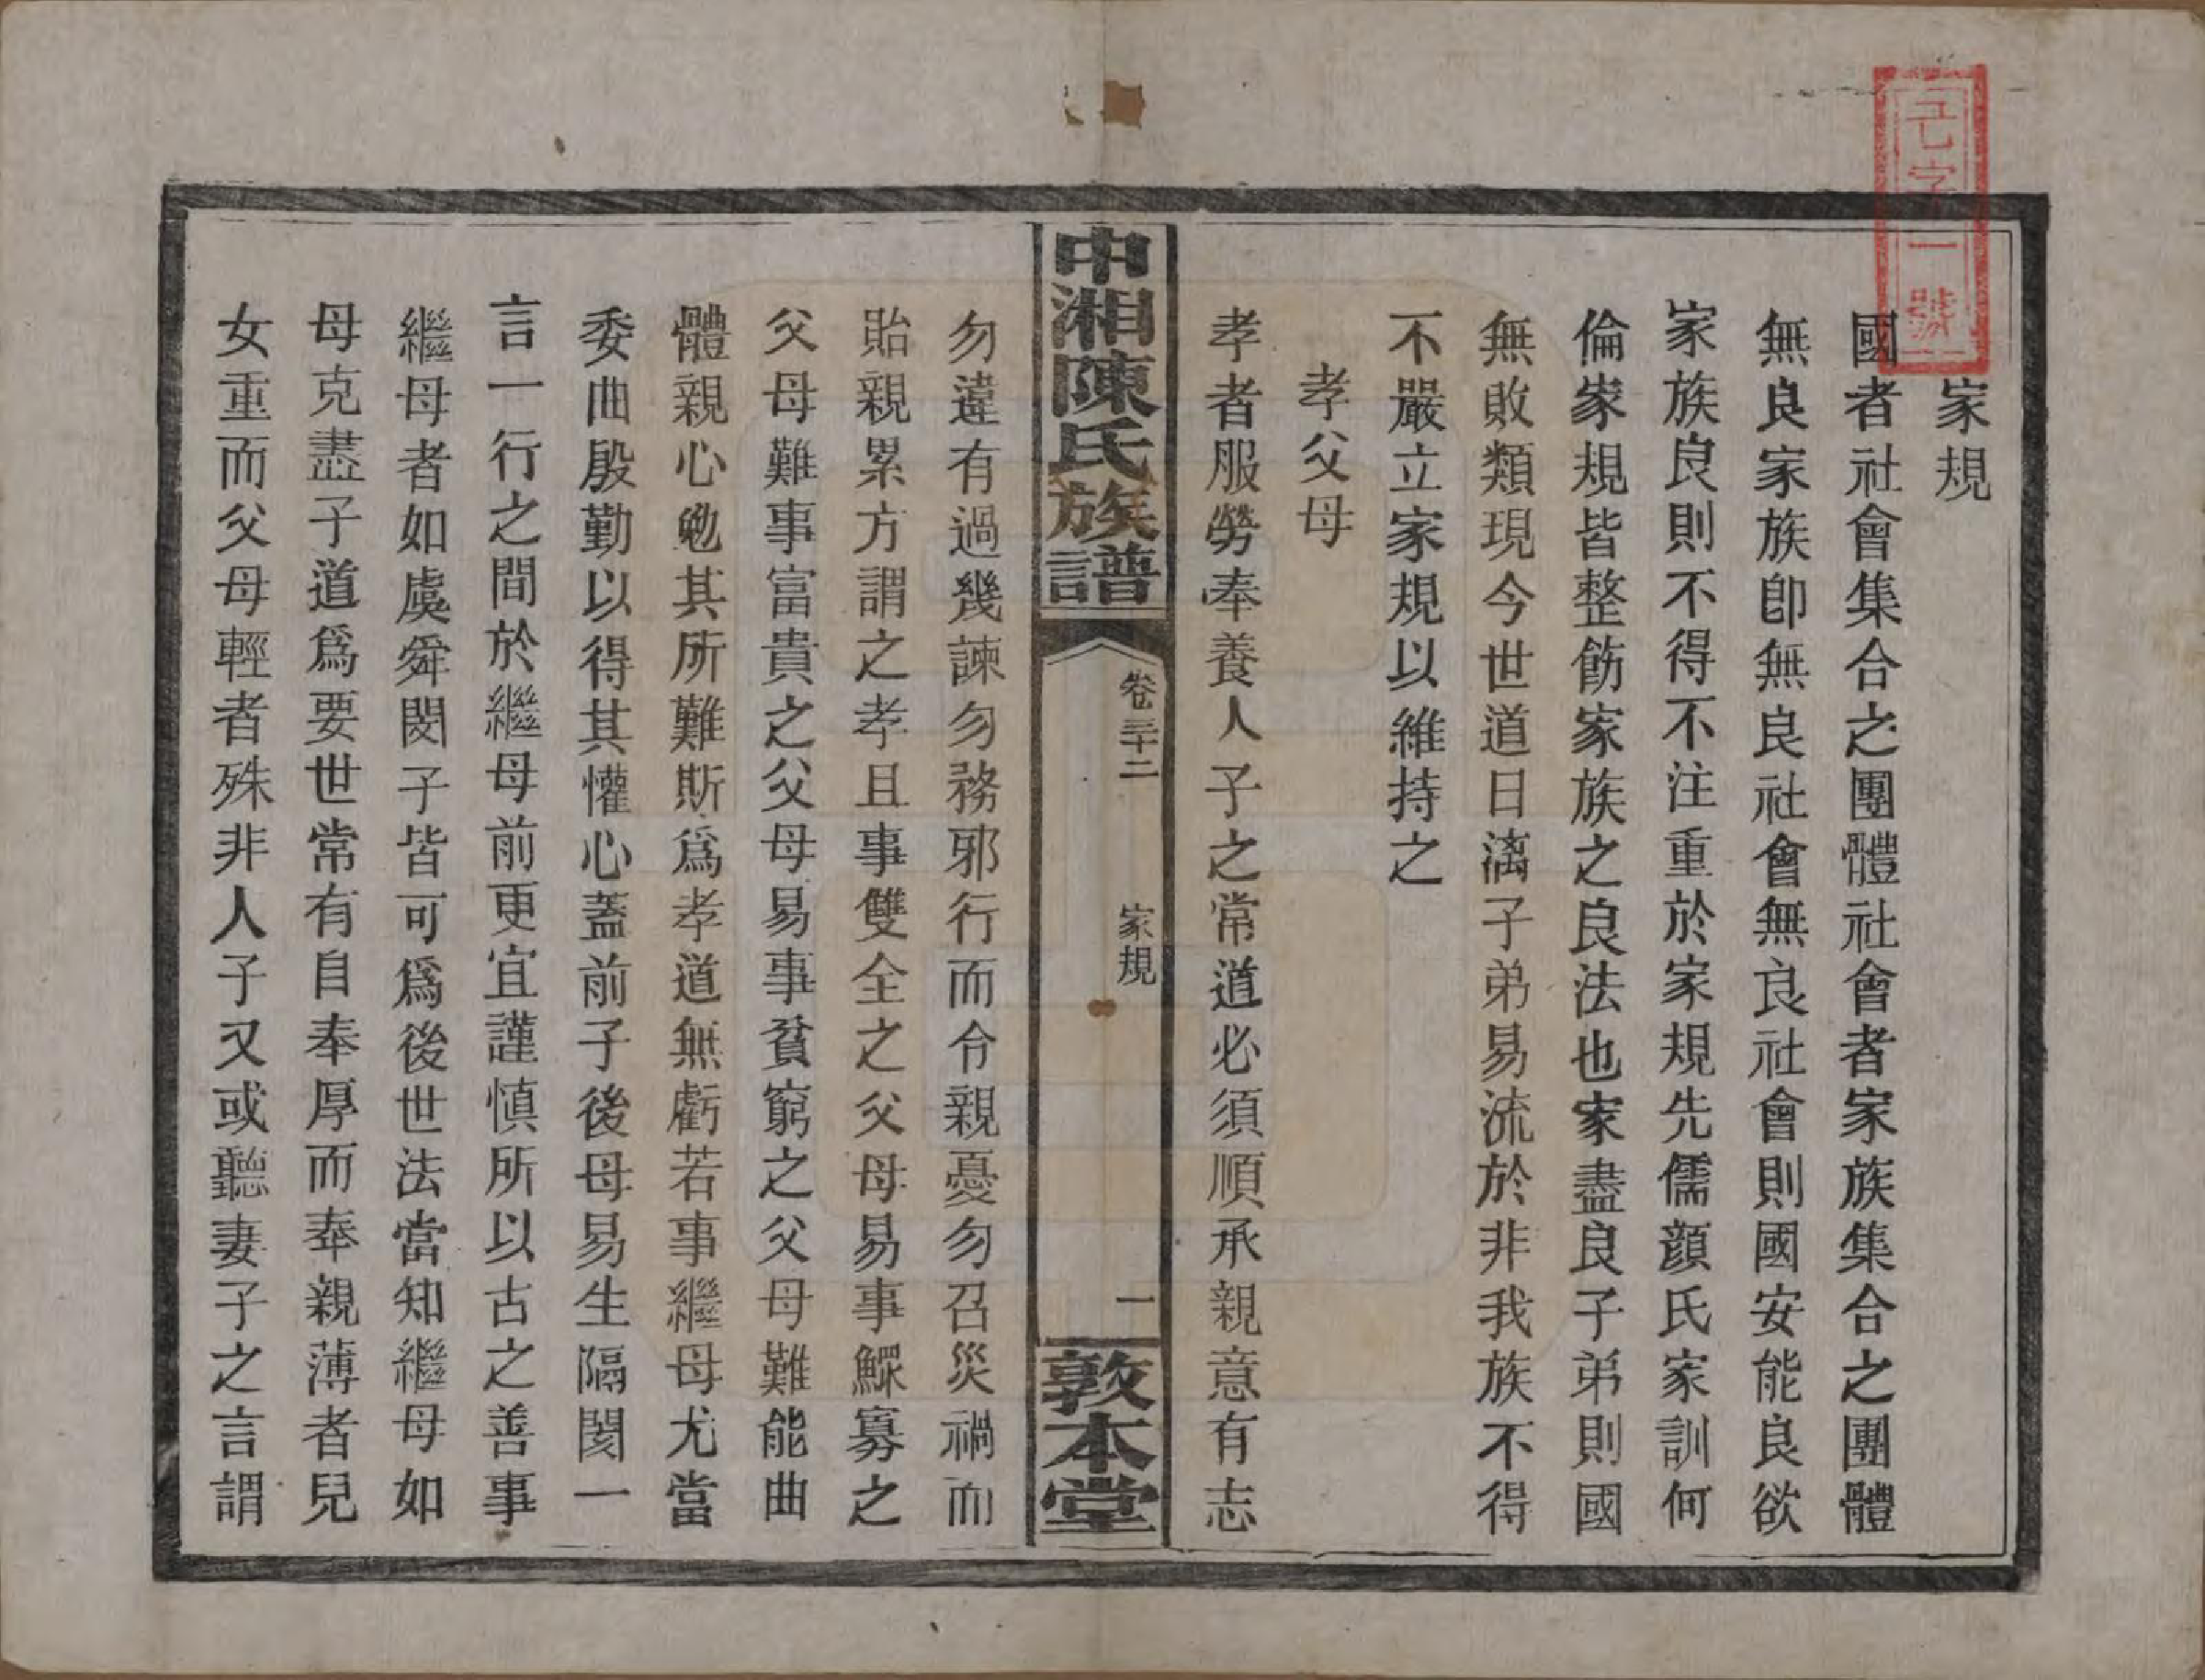 家規
國者社會集合之團體社會者家族集合之團體
無良家族卽無良社會無良社會則國安能良欲
家族良則不得不注重於家規先儒顏氏家訓何
倫家規皆整飭家族之良法也家盡良子弟則國
無敗類現今世道日漓子弟易流於非我族不得
不嚴立家規以維持之
孝父母
孝者服勞奉養人子之常道必須順承親意有志
中湘陳氏族譜
卷三十二
家規
一
敦本堂
勿違有過幾諫勿務邪行而令親憂勿召災禍而
貽親累方謂之孝且事雙全之父母易事鰥寡之
父母難事富貴之父母易事貧窮之父母難能曲
體親心勉其所難斯爲孝道無虧若事繼母尤當
委曲殷勤以得其懽心蓋前子後母易生隔閡一
言一行之間於繼母前更宜謹慎所以古之善事
繼母者如虞舜閔子皆可爲後世法當知繼母如
母克盡子道爲要世常有自奉厚而奉親薄者兒
女重而父母輕者殊非人子又或聽妻子之言謂
字一號